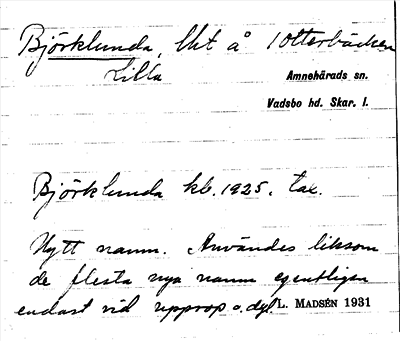 Björklunda, lht å 1 Otterbäcken
Lilla
Amnehärads sn.
Vadsbo hd. Skar. l.
Björklunda kb. 1925. tax.
Nytt namn. Användes liksom
de flesta nya namn egentligen
endast vid upprop o. dyl. L. MADSÉN 1931